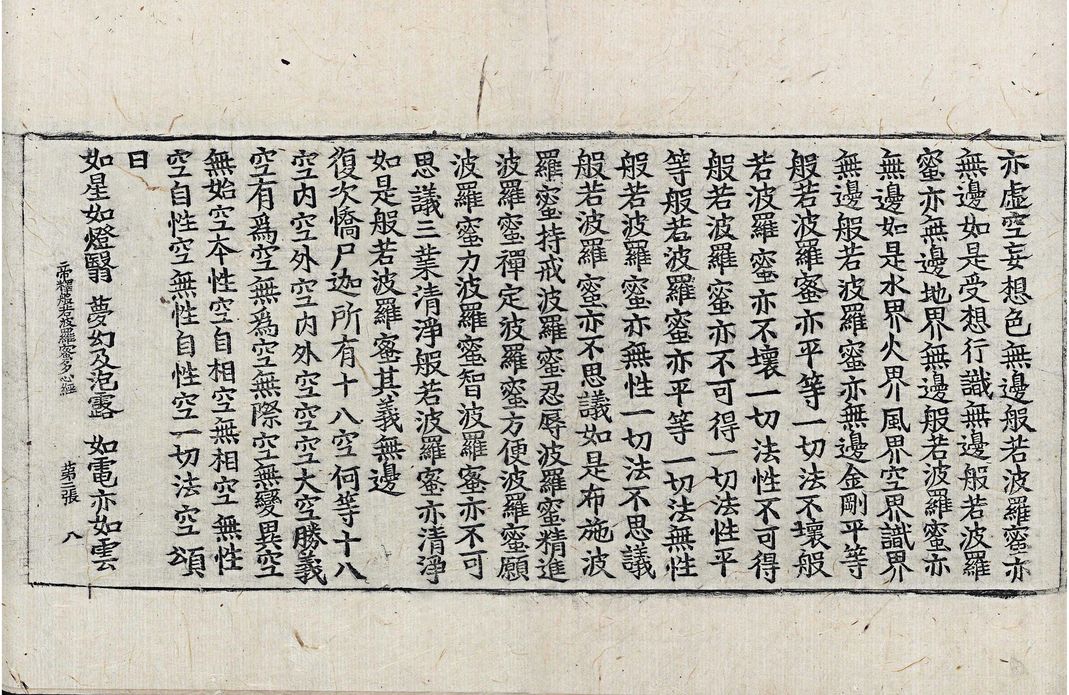 亦虛空妄想色無邊般若波羅蜜亦
無邊如是受想行識無邊般若波羅
蜜亦無邊地界無邊般若波羅蜜亦
無邊如是水界火界風界空界識界
無邊般若波羅蜜亦無邊金剛平等
般若波羅蜜亦平等一切法不壞般
若波羅蜜亦不壞一切法性不可得
般若波羅蜜亦不可得一切法性平
等般若波羅蜜亦平等一切法無性
般若波羅蜜亦無性一切法不思議
般若波羅蜜亦不思議如是布施波
羅蜜持戒波羅蜜忍辱波羅蜜精進
波羅蜜禪定波羅蜜方便波羅蜜願
波羅蜜力波羅蜜智波羅蜜亦不可
思議三業清淨般若波羅蜜亦清淨
如是般若波羅蜜其義無邊
復次憍尸迦所有十八空何等十八
空內空外空內外空空空大空勝義
空有爲空無爲空無際空無變異空
無始空本性空自相空無相空無性
空自性空無性自性空一切法空頌
曰
如星如燈翳 夢幻及泡露 如電亦如雲
帝釋般若波羅蜜多心經 第三張 八